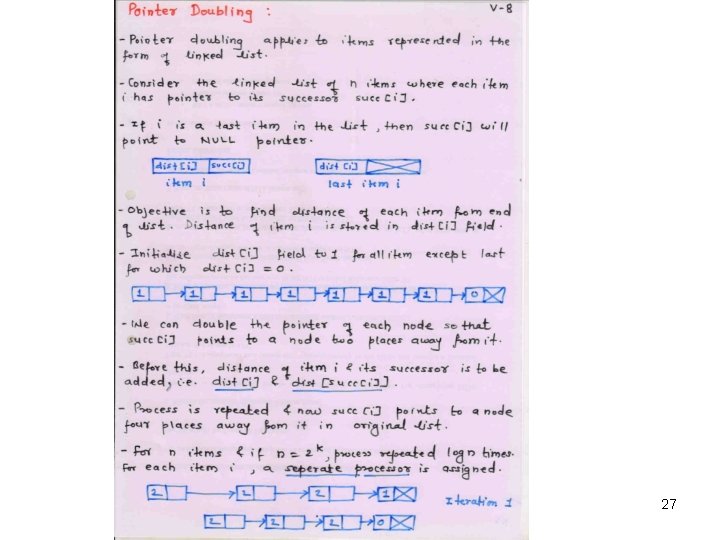 Pointer Doubling :
V-8
- Pointer doubling applies to items represented in the
form of linked list.
- Consider the linked list of n items where each item
i has pointer to its successor succ [i].
- If i is a last item in the list, then succ [i] will
point to NULL pointer.
dist[i] succ[i] dist [i]
item i last item i
- Objective is to find distance of each item from end
of list. Distance of item i is stored in dist [i] field.
- Initialise dist [i] field to 1 for all item except last
for which dist [i] = 0.
1 1 1 1 1 1 1 0
- We can double the pointer of each node so that
succ [i] points to a node two places away from it.
- Before this, distance of item i & its successor is to be
added, i.e. dist [i] & dist [succ[i]].
- Process is repeated & now succ [i] points to a node
four places away from it in original list.
- For n items & if n = 2^k, process repeated log n times.
For each item i , a seperate processor is assigned.
2 2 2 1
Iteration 1
2 2 2 0
27